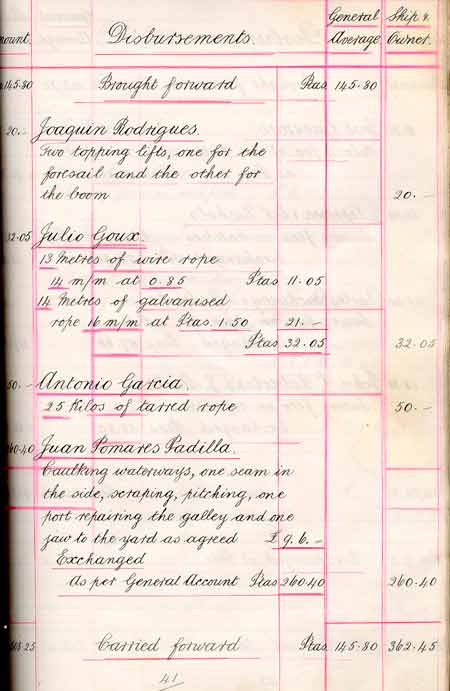 General Ship &
mount. Disbursements. Average Owner.
145.80 Brought forward Ptas 145.80
20.- Joaquin Rodrigues.
Two topping lifts, one for the
foresail and the other for
the boom 20.-
32.05 Julio Goux.
13 Metres of wire rope
14 m/m at 0.85 Ptas 11.05
14 Metres of galvanised
rope 16 m/m at Ptas. 1.50 21.-
Ptas 32.05 32.05
50.- Antonio Garcia.
25 Kilos of tarred rope 50.-
60.40 Juan Pomares Padilla.
Caulking waterways, one seam in
the side, scraping, pitching, one
port repairing the galley and one
jaw to the yard as agreed £ 9.6.-
Exchanged
As per General Account Ptas 260.40 260.40
8.25 Carried forward Ptas 145.80 362.45
41